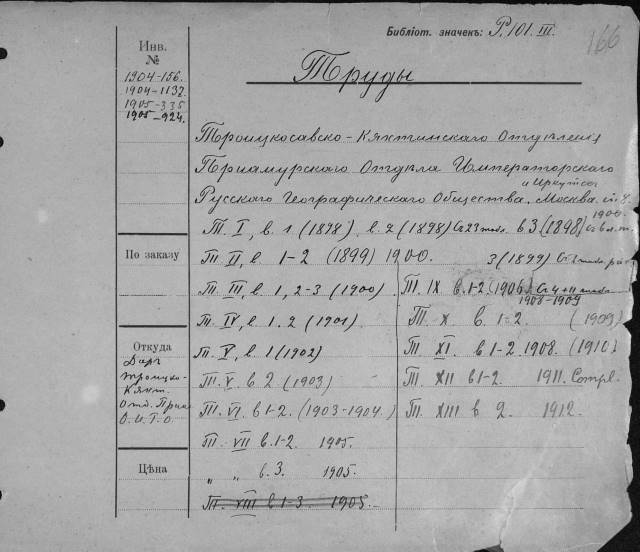 Библіот. значекъ: Р. 101. III.
166
Инв.
№
1904-156.
1904-1132.
1905-335
1905-924.
Труды
Троицкосавско-Кяхтинскаго Отдѣленія
Приамурскаго Отдѣла Императорскаго
и Иркутск
Русскаго Географическаго Общества. Москва. in 8.
1900.
Т. I, в. 1 (1898), в. 2 (1898) в 3 (1898)
По заказу
Т. II, в. 1-2 (1899) 1900. 3 (1899)
Т. III, в. 1, 2-3 (1900)
Т. IX в. 1-2. (1906)
1908-1909
Т. IV, в. 1. 2 (1901)
Т. X в. 1-2. (1909)
Откуда
Даръ
Троицко-
Кяхт.
Отд. Приа
О. И. Г. О.
Т. V, в. 1 (1902)
Т. XI. в 1-2. 1908. (1910)
Т. V. в 2 (1903)
Т. XII в 1-2. 1911. Compl.
Т. VI. в 1-2. (1903-1904.)
Т. XIII в 2. 1912.
Т. VII в. 1-2. 1905.
Цѣна
" " в. 3. 1905.
Т. VIII в 1-3. 1905.